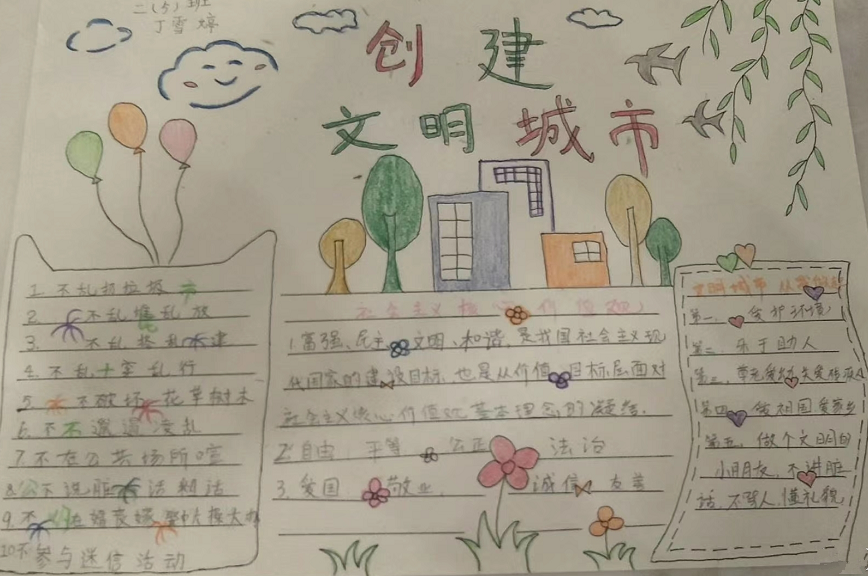 二(5)班
丁雪婷
创建
文明城市
1. 不乱扔垃圾
2. 不乱堆乱放
3. 不乱搭乱建
4. 不乱穿乱行
5. 不破坏花草树木
6. 不邋遢凌乱
7. 不在公共场所喧
8. 不说脏话粗话
9. 不在婚丧嫁娶大操大办
10 不参与迷信活动
社会主义核心价值观
1 富强、民主、文明、和谐,是我国社会主义现
代国家的建设目标,也是从价值目标层面对
社会主义核心价值观基本理念的凝练.
2 自由 平等 公正 法治
3. 爱国 敬业. 诚信 友善
文明城市 从我
第一、爱护环境
第二、乐于助人
第三、尊老爱幼
第四、爱祖国爱家乡
第五、做个文明的
小朋友,不讲脏
话,不骂人,懂礼貌